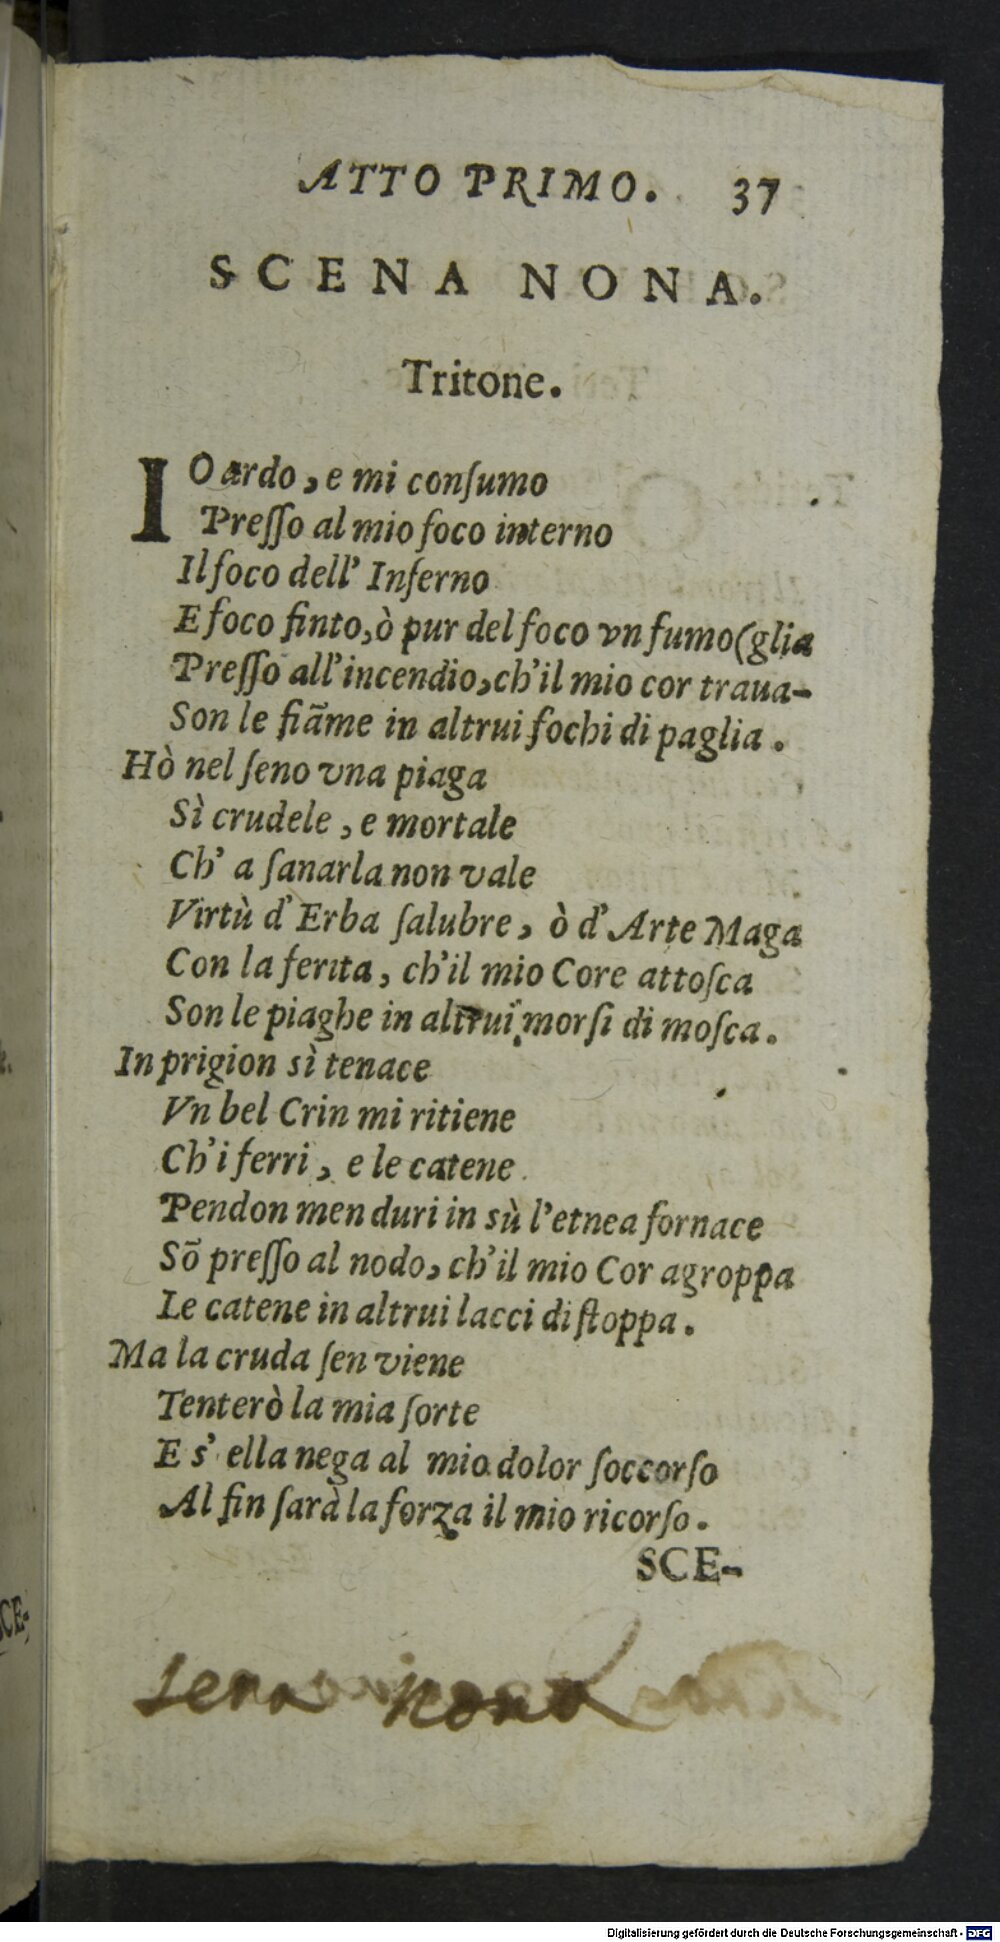 ATTO PRIMO. 37
SCENA NONA.
Tritone.
IO ardo, e mi conſumo
Preſſo al mio foco interno
Il foco dell' Inferno
E foco finto, ò pur del foco vn fumo (glia
Preſſo all'incendio, ch'il mio cor traua-
Son le fiãme in altrui fochi di paglia.
Hò nel ſeno vna piaga
Sì crudele, e mortale
Ch' a ſanarla non vale
Virtù d' Erba ſalubre, ò d' Arte Maga
Con la ferita, ch'il mio Core attoſca
Son le piaghe in altrui morſi di moſca.
In prigion sì tenace
Vn bel Crin mi ritiene
Ch'i ferri, e le catene
Pendon men duri in sù l'etnea fornace
Sõ preſſo al nodo, ch'il mio Cor agroppa
Le catene in altrui lacci di ſtoppa.
Ma la cruda ſen viene
Tenterò la mia ſorte
E s' ella nega al mio dolor ſoccorſo
Al fin ſarà la forza il mio ricorſo.
SCE-
sena nona
Digitalisierung gefördert durch die Deutsche Forschungsgemeinschaft - DFG